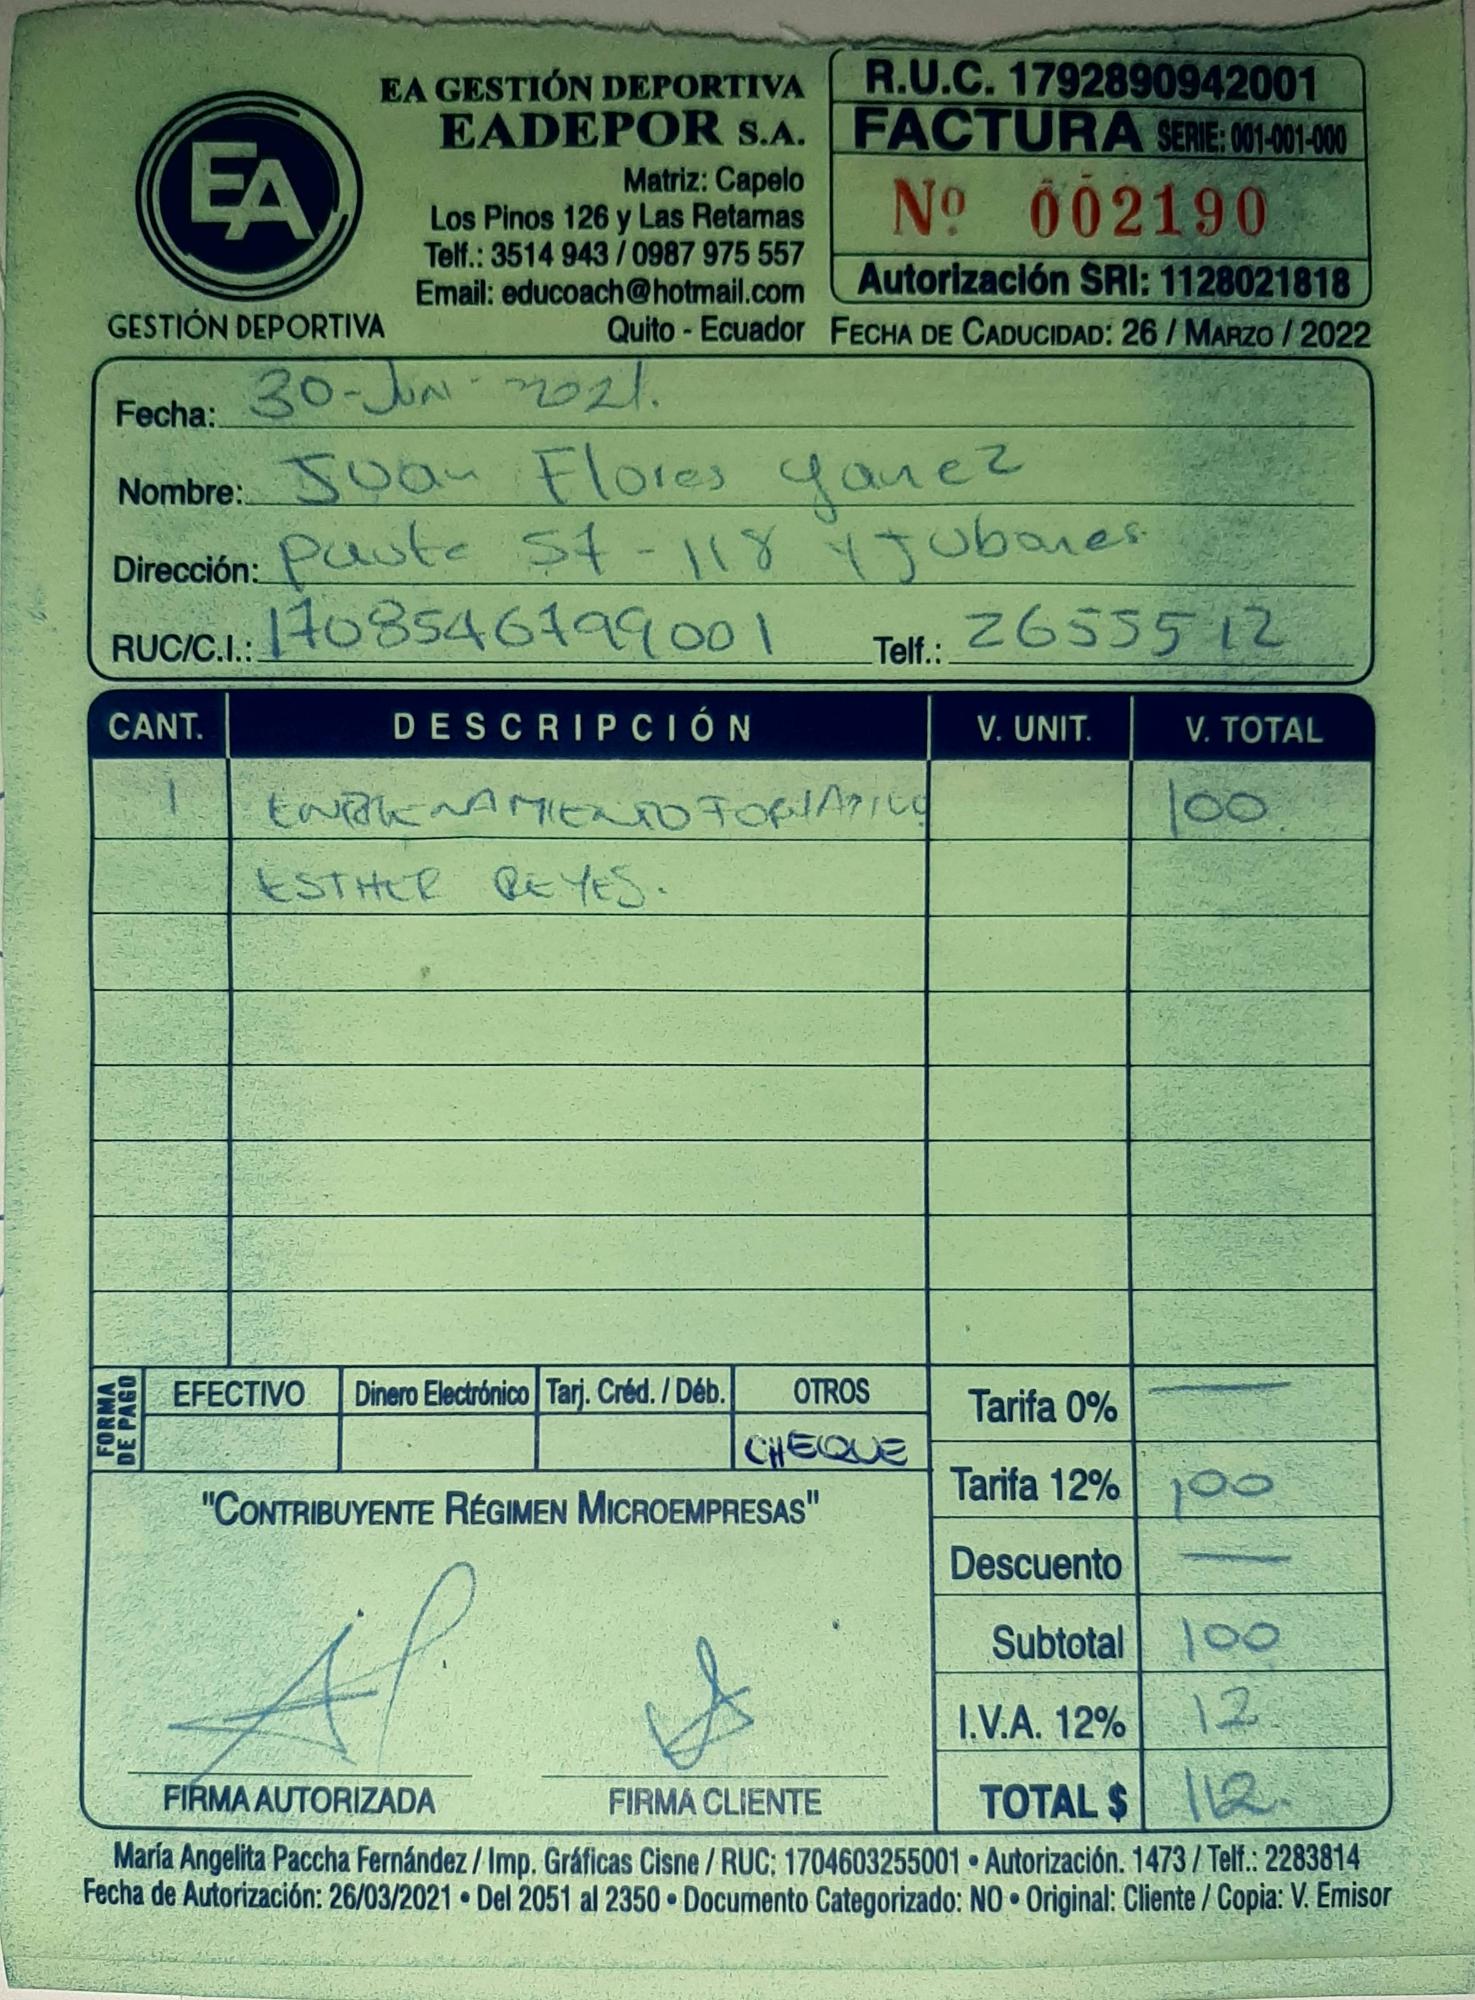 EA
GESTIÓN DEPORTIVA
EA GESTIÓN DEPORTIVA
EADEPOR S.A.
Matriz: Capelo
Los Pinos 126 y Las Retamas
Telf.: 3514 943 / 0987 975 557
Email: educoach@hotmail.com
Quito - Ecuador
R.U.C. 1792890942001
FACTURA SERIE: 001-001-000
Nº 002190
Autorización SRI: 1128021818
FECHA DE CADUCIDAD: 26 / MARZO / 2022
Fecha: 30-Jun-2021.
Nombre: Juan Flores Yanez
Dirección: Paute S7-118 y Jubones
RUC/C.I.: 1708546799001 Telf.: 2655512
CANT. DESCRIPCIÓN V. UNIT. V. TOTAL
1 ENTRENAMIENTO FORMATIVO 100
ESTHER REYES.
FORMA DE PAGO
EFECTIVO Dinero Electrónico Tarj. Créd. / Déb. OTROS
CHEQUE
Tarifa 0% —
Tarifa 12% 100
Descuento —
Subtotal 100
I.V.A. 12% 12
TOTAL $ 112.
"CONTRIBUYENTE RÉGIMEN MICROEMPRESAS"
FIRMA AUTORIZADA FIRMA CLIENTE
María Angelita Paccha Fernández / Imp. Gráficas Cisne / RUC: 1704603255001 • Autorización. 1473 / Telf.: 2283814
Fecha de Autorización: 26/03/2021 • Del 2051 al 2350 • Documento Categorizado: NO • Original: Cliente / Copia: V. Emisor